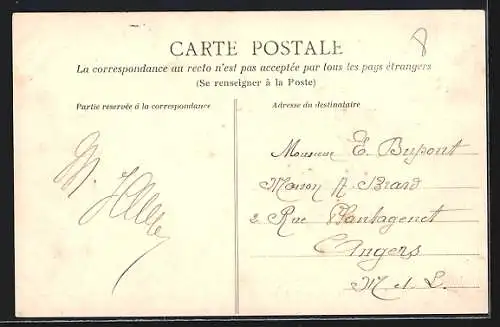 8
CARTE POSTALE
La correspondance au recto n'est pas acceptée par tous les pays étrangers
(Se renseigner à la Poste)
Partie reservée à la correspondance
Adresse du destinataire
Monsieur E. Dupont
Maison A. Brard
2 Rue Plantagenet
Angers
M et L.
M.